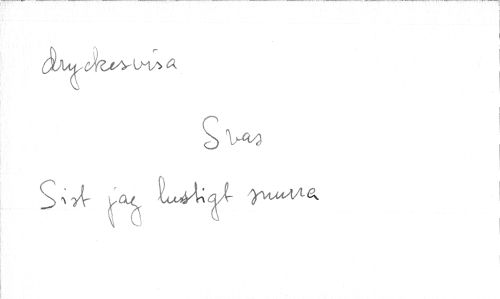 dryckesvisa
Svas
Sist jag lustigt snurra